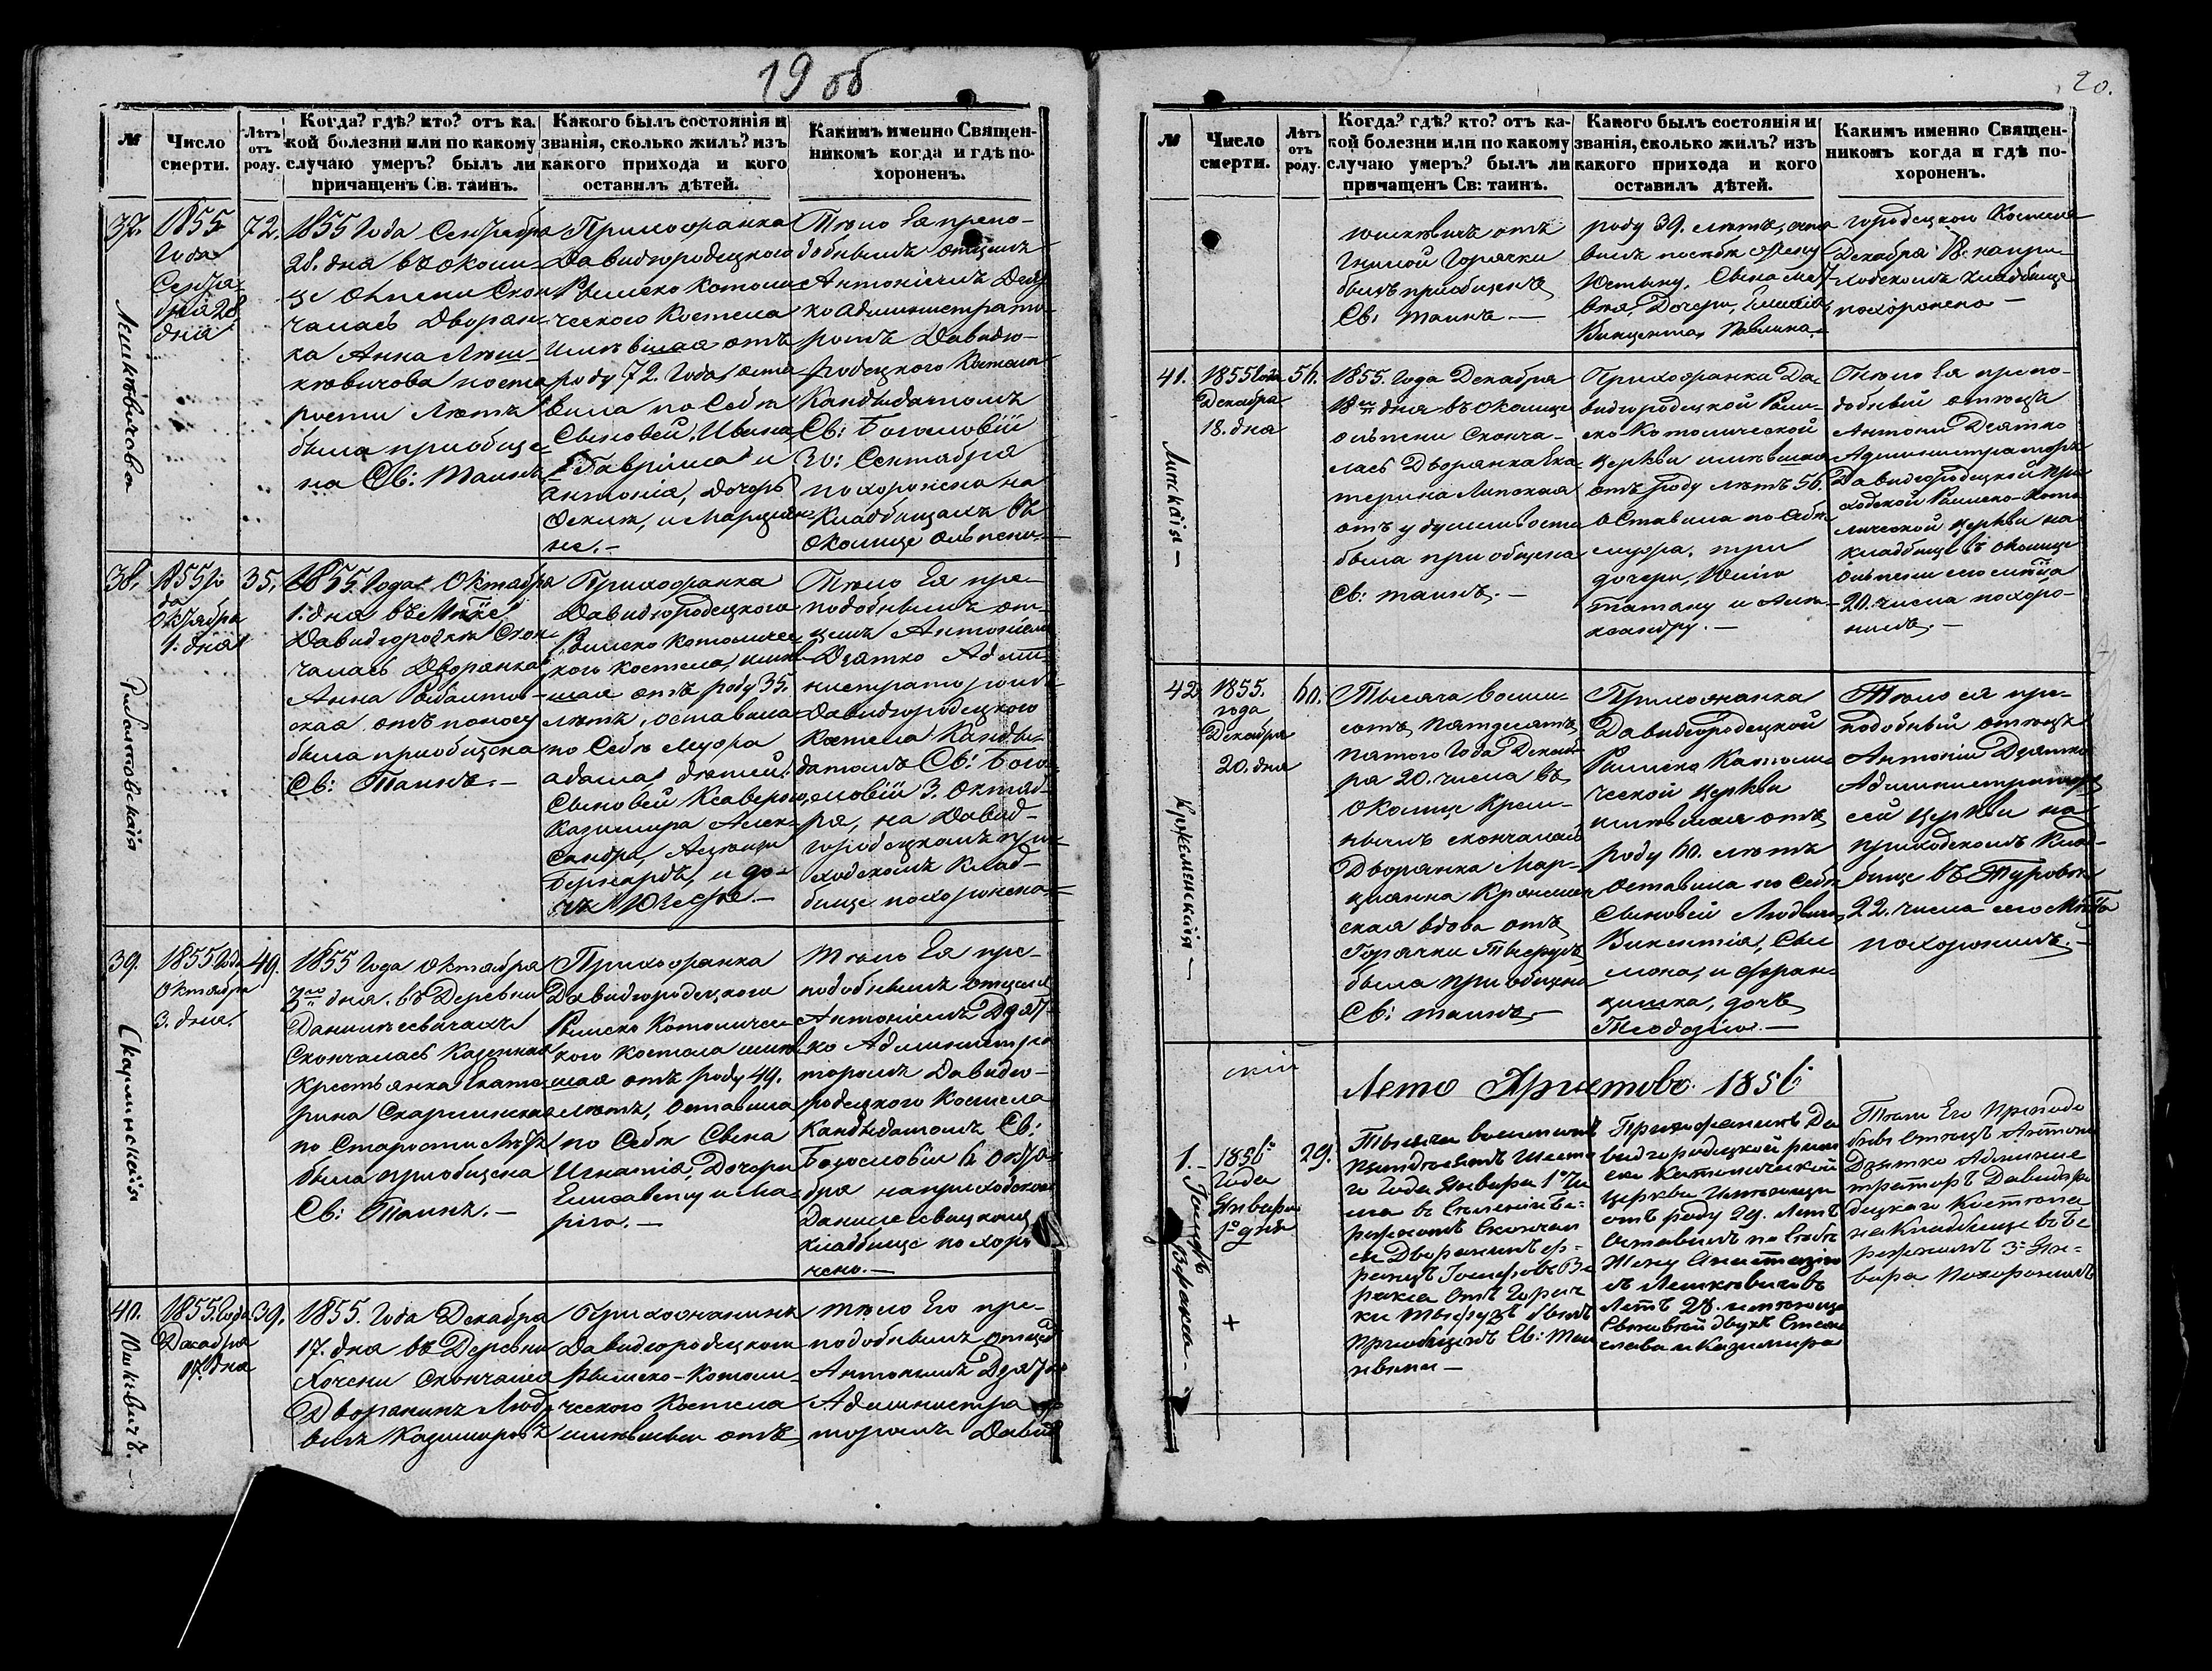 19 об
№
Число
смерти.
Лѣтъ
отъ
роду.
Когда? гдѣ? кто? отъ ка-
кой болезни или по какому
случаю умеръ? былъ ли
причащенъ Св. таинъ.
Какого былъ состоянія и
званія, сколько жилъ? изъ
какого прихода и кого
оставилъ дѣтей.
Какимъ именно Священ-
никомъ когда и гдѣ по-
хороненъ.
37.
1855
Года
Сентя-
бря 28
дня
72.
1855 Года Сентября
28. дня въ околи-
це Ольпени Скон
чалась Дворян-
ка Анна
по ста
рости Лѣтъ
была приобще-
на Св: Таинъ
Прихожанка
Давидгородецкого
Римско Католи
ческого Костела
имѣвшая отъ
роду 72. Года, оста
вила по Себѣ
Сыновей, Ивана
Гавріила и
Антонія, дочерь
Тѣло Ея препо-
добнымъ отцемъ
Антоніемъ Дзят
ко Администрато-
ромъ Давидго-
родецкого Костела
Кандыдатомъ
Св: Богословіи
30: Сентября
похоронена на
Кладбищахъ въ
Околице Ольпени.
38.
1855 Го
да
Октября
1. дня
35.
1855. Года Октября
1. дня въ
Давидгородки Скон
чалась Дворянка
Анна
ская отъ поносу
была приобщена
Св: Таинъ. —
Прихожанка
Давидгородецкого
Римско Католичес
кого костела, имѣв
шая отъ роду 35.
лѣтъ, оставила
по Себѣ Мужа
адама дѣтей:
Сыновей Ксаверого,
Казимира Алек-
сандра,
и до-
Тѣло Ея пре-
подобнымъ от-
цемъ Антоніемъ
Дзятко Адми-
нистраторомъ
Давидгородецкого
Костела Канды-
датомъ Св: Бого-
словіи 3. Октяб-
ря, на Давид-
городецкомъ при-
ходскомъ Клад-
бище похоронена
39.
1855. Года
Октября
3. дня.
49.
Скарлинская
1855 Года Октября
3го дня. въ Деревни
Данилчевичахъ
Скончалась Казенная
Крестьянка Екате
рина Скарлинская
по Старости Лѣтъ
была приобщена
Св: Таинъ. —
Прихожанка
Давидгородецкого
Римско Католичес
кого Костела имѣв
шая отъ роду 49.
лѣтъ, Оставила
по Себѣ Сына
Игнатія, Дочери
Елисавету и Ма-
рію. —
Тѣло Ея пре-
подобнымъ отцемъ
Антоніемъ Дзят
ко Администра
торомъ Давидго-
родецкого Костела
Кандыдатомъ Св:
Богословіи 6 Октя-
бря на приходском
кладбище похоро
нено. —
40.
1855. Года
Декабря
17. дня
39.
Юшкевичъ. —
1855. Года Декабря
17. дня въ Деревни
Хочени Скончался
Дворянинъ Люд
викъ Казимировъ
Прихожанинъ
Давидгородецкого
Рымско-Католи-
ческого Костела
имѣвшій отъ
тѣло Его пре-
подобнымъ отцемъ
Антониемъ Дзятко
Администра
торомъ Давид
20.
№
Число
смерти.
Лѣтъ
отъ
роду.
Когда? гдѣ? кто? отъ ка-
кой болезни или по какому
случаю умеръ? былъ ли
причащенъ Св: таинъ.
Какого былъ состоянія и
званія, сколько жилъ? изъ
какого прихода и кого
оставилъ дѣтей.
Какимъ именно Священ-
никомъ когда и гдѣ по-
хороненъ.
юшкевичъ отъ
Гнилой Горячки
былъ приобщенъ
Св: таинъ. —
роду 39. лѣтъ, оста
вилъ по себѣ жену
Юстыну, Сына
Дочери,
Винценту, Паулину.
городецкого Костела
Декабря 18. на при-
ходскомъ кладбище
похоронено —
41.
1855 Года
Декабря
18. дня
56.
Липская —
1855. Года Декабря
18го дня въ Околице
Ольпени Сконча-
лась Дворянка Ека-
терина Липская
отъ удушливости
была приобщена
Св: таинъ. —
Прихожанка Да-
видгородецкой Рим-
ско Католической
Церкви имѣвшая
отъ роду лѣтъ 56.
Оставила по Себѣ
мужа. три
дочери,
татяну и Але-
ксандру. —
Тѣло Ея препо-
добный отецъ
Антони Дзятко
Администраторъ
Давидгородецкой При
ходской Римско-Като
лической Церкви на
кладбище въ околице
Ольпени
20. числа похоро-
нилъ. —
42.
1855.
года
Декабря
20. дня
60.
Кржеменская —
Тысяча восем-
сотъ пятдесятъ
пятого Года Декаб-
ря 20. числа въ
Околице Крем-
нымъ скончалась
Дворянка Мар-
цианна Кржемен
ская вдова отъ
Горячки Тыфузъ
была приобщена
Св: таинъ —
Прихожанка
Давидгородецкой
Римско Католи-
ческой церкви
имѣвшая отъ
роду 60. лѣтъ
Оставила по Себѣ
Сыновей Людвика,
Викентія, Сы-
мона, и Фран-
цишка, дочь
Теодозію. —
Тѣло ея пре-
подобный отецъ
Антоній Дзятко
Администраторъ
сей церкви на
приходскомъ Клад-
бище въ Туровѣ
22. числа сего Мѣс-ца
похоронилъ. —
Лето Христово 1856
1. —
1856
Года
Января
1о дня
+
29.
Тысяча восемьсотъ
пятдесятъ Шесто
го Года Января 1о Чи
сла въ Селеніи Бе-
режномъ Скончал
ся Дворянинъ
отъ Горяч
ки Тыфузъ былъ
Приобщенъ Св: Таи
нами —
Прихожанинъ Да
видгородецкой римс
ко Католической
Церкви Имѣющи
отъ роду 29. Лѣтъ
Оставилъ по Себѣ
Жену
Лѣтъ 28. имѣюща
Сыновей двухъ
слава и Казимира
Тѣло Его Преподо
бны Отецъ Антони
Дзятко Админис
траторъ Давидго
децкаго Костела
на Кладбище въ Бе
режномъ 3о Ян-
варя Похоронилъ